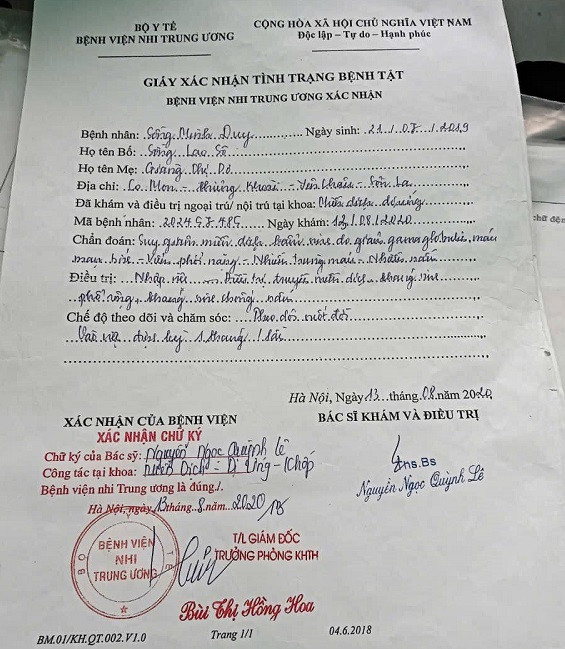 BỘ Y TẾ
BỆNH VIỆN NHI TRUNG ƯƠNG
CỘNG HÒA XÃ HỘI CHỦ NGHĨA VIỆT NAM
Độc lập – Tự do – Hạnh phúc
GIẤY XÁC NHẬN TÌNH TRẠNG BỆNH TẬT
BỆNH VIỆN NHI TRUNG ƯƠNG XÁC NHẬN
Bệnh nhân: Sồng Minh Duy Ngày sinh: 21/07/2019
Họ tên Bố: Sồng Lao Sô
Họ tên Mẹ: Giàng Thị Dở
Địa chỉ: Co Mon - Phiêng Khoài - Yên Châu - Sơn La
Đã khám và điều trị ngoại trú/ nội trú tại khoa: Miễn dịch dị ứng
Mã bệnh nhân: 202457485 Ngày khám: 12/08/2020
Chẩn đoán: Suy giảm miễn dịch bẩm sinh do giảm gamaglobulin máu
Viêm phổi nặng - Nhiễm trùng máu - Nhiễm nấm
Điều trị: Nhập viện điều trị, truyền miễn dịch, kháng sinh
phổ rộng, kháng sinh chống nấm
Chế độ theo dõi và chăm sóc: Theo dõi suốt đời
Vào viện định kỳ 1 tháng 1 lần
chữ đện
Hà Nội, Ngày 13 tháng 08 năm 2020
XÁC NHẬN CỦA BỆNH VIỆN
XÁC NHẬN CHỮ KÝ
Chữ ký của Bác sỹ: Nguyễn Ngọc Quỳnh Lê
Công tác tại khoa: Miễn Dịch - Dị Ứng - Khớp
Bệnh viện nhi Trung ương là đúng./.
Hà Nội, ngày 13 tháng 8 năm 2020
BÁC SĨ KHÁM VÀ ĐIỀU TRỊ
Ths.Bs
Nguyễn Ngọc Quỳnh Lê
BỘ Y TẾ
BỆNH VIỆN
NHI
TRUNG ƯƠNG
T/L GIÁM ĐỐC
TRƯỞNG PHÒNG KHTH
Bùi Thị Hồng Hoa
BM.01/KH.QT.002.V1.0
Trang 1/1
04.6.2018